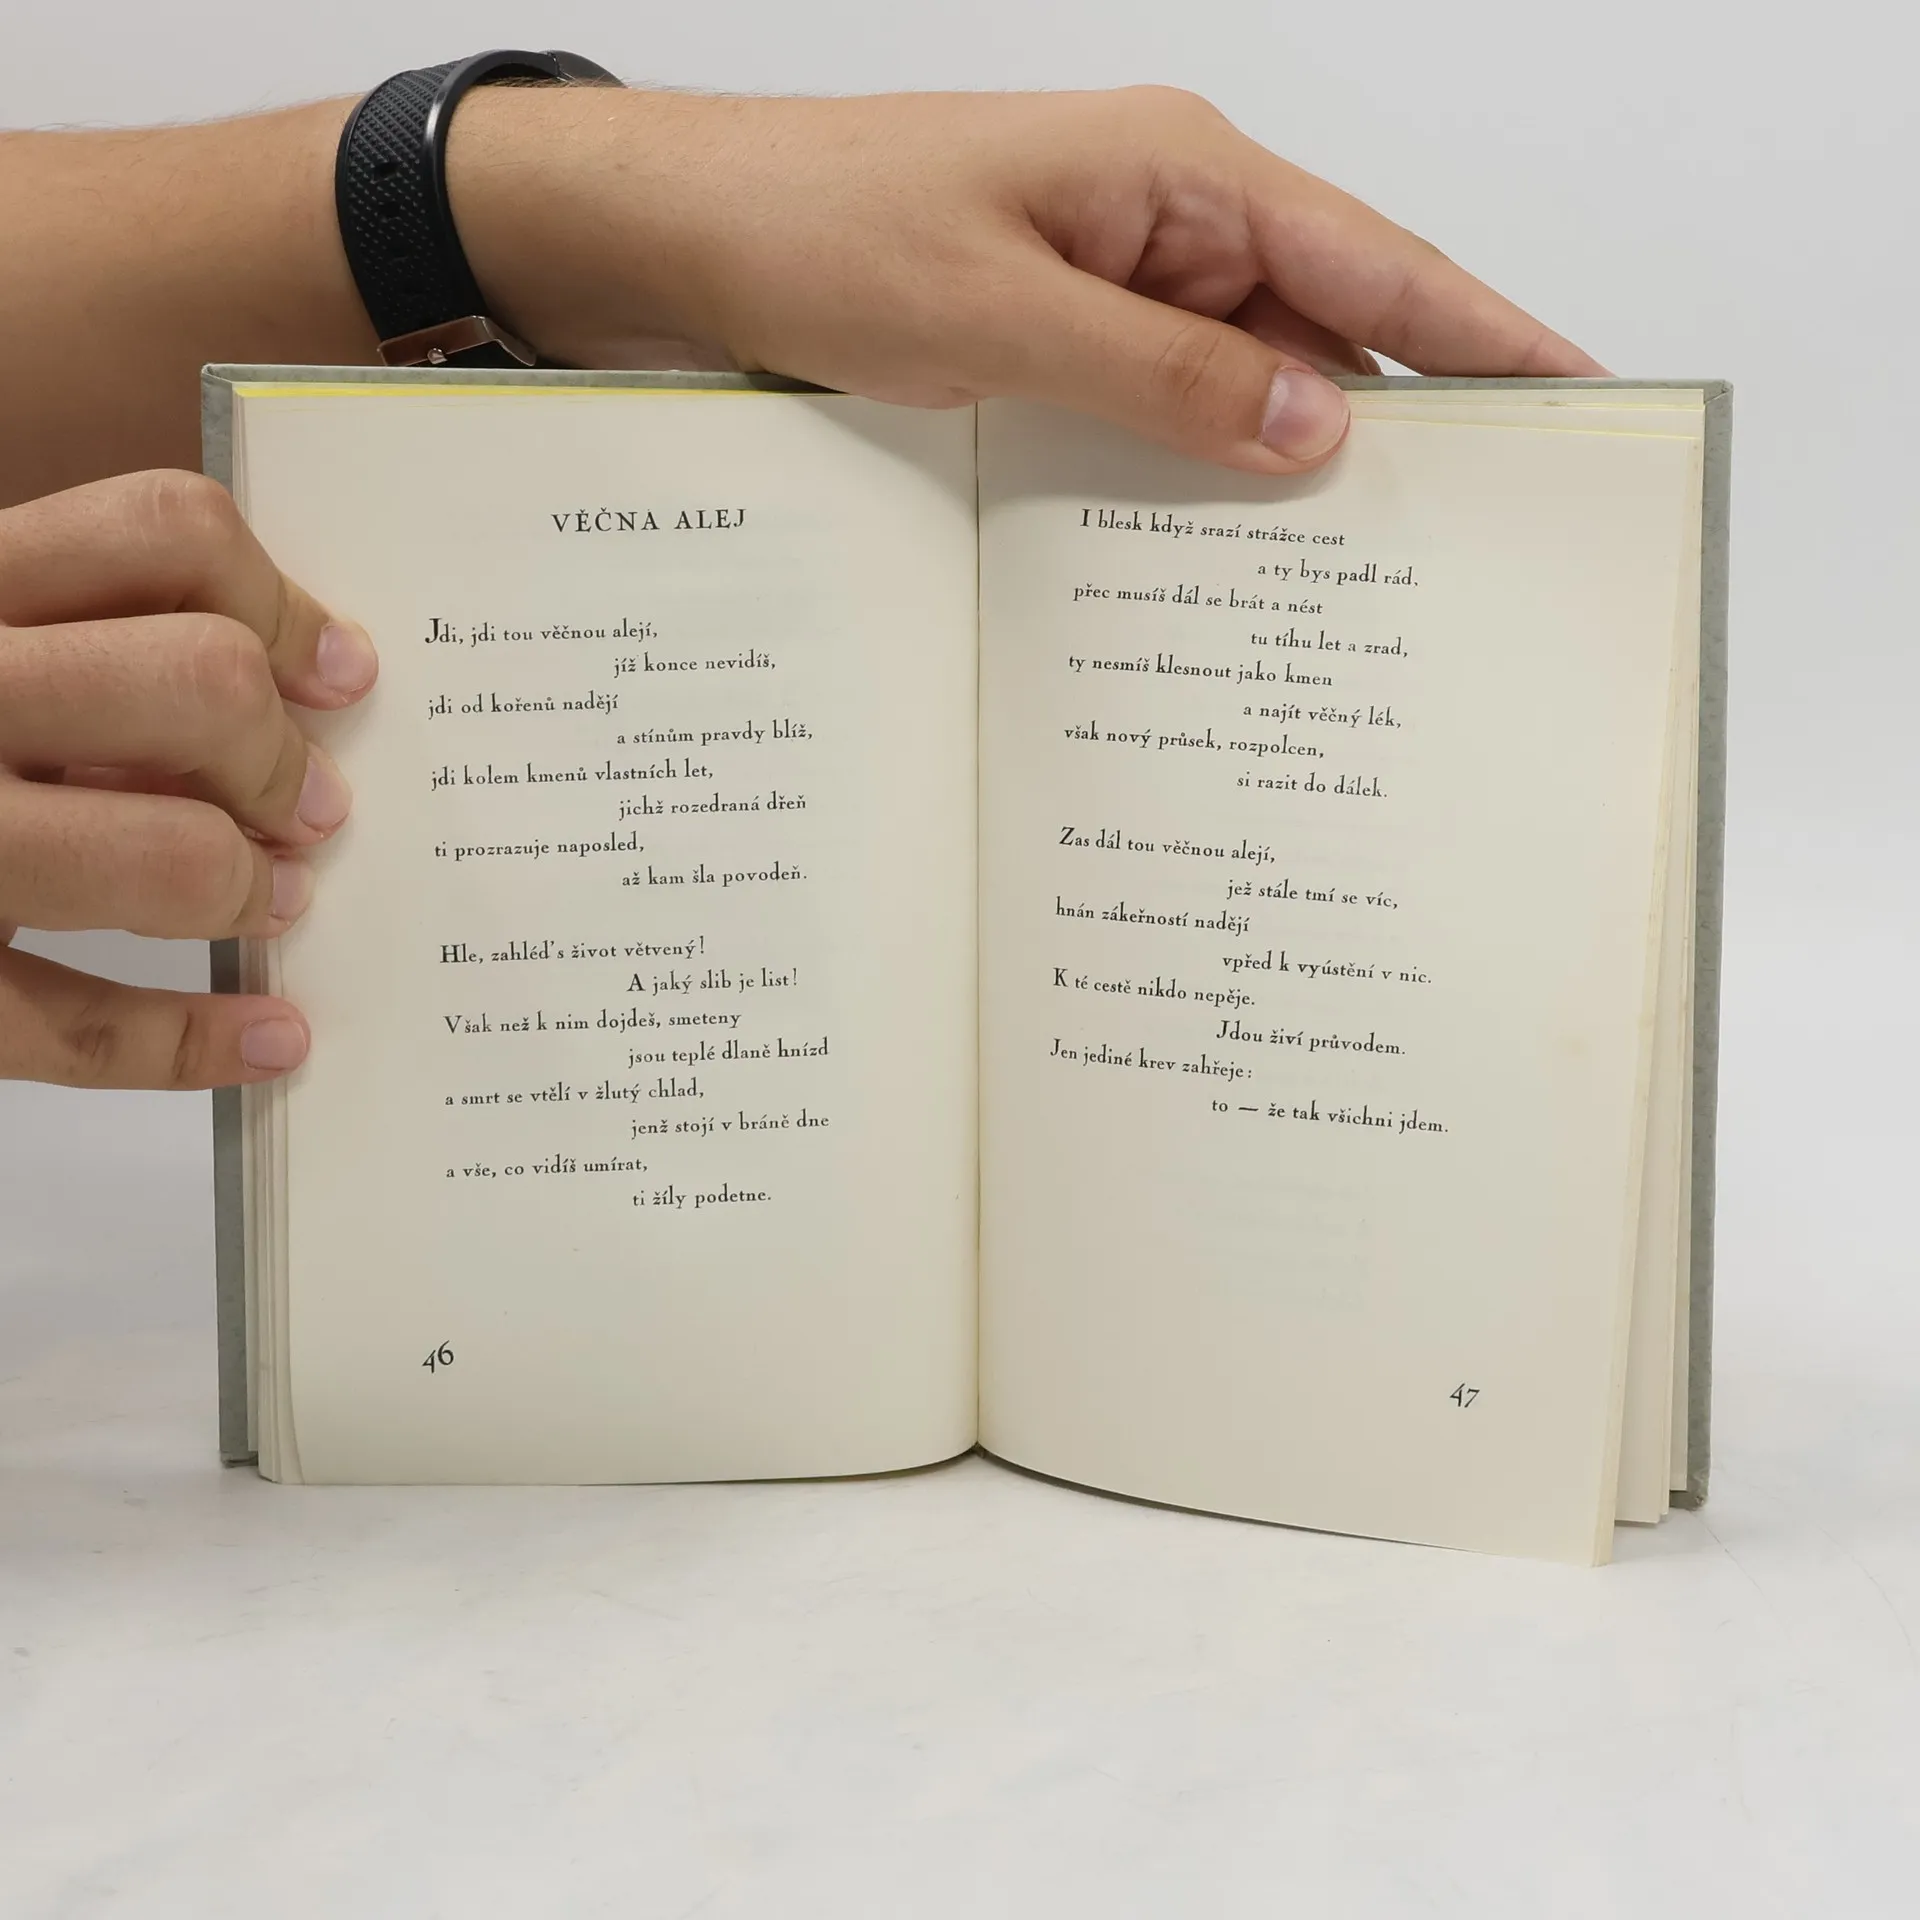 VĚČNÁ ALEJ
Jdi, jdi tou věčnou alejí,
jíž konce nevidíš,
jdi od kořenů nadějí
a stínům pravdy blíž,
jdi kolem kmenů vlastních let,
jichž rozedraná dřeň
ti prozrazuje naposled,
až kam šla povodeň.
Hle, zahléd's život větvený!
A jaký slib je list!
Však než k nim dojdeš, smeteny
jsou teplé dlaně hnízd
a smrt se vtělí v žlutý chlad,
jenž stojí v bráně dne
a vše, co vidíš umírat,
ti žíly podetne.
46
I blesk když srazí strážce cest
a ty bys padl rád,
přec musíš dál se brát a nést
tu tíhu let a zrad,
ty nesmíš klesnout jako kmen
a najít věčný lék,
však nový průsek, rozpolcen,
si razit do dálek.
Zas dál tou věčnou alejí,
jež stále tmí se víc,
hnán zákeřností nadějí
vpřed k vyústění v nic.
K té cestě nikdo nepěje.
Jdou živí průvodem.
Jen jediné krev zahřeje:
to — že tak všichni jdem.
47